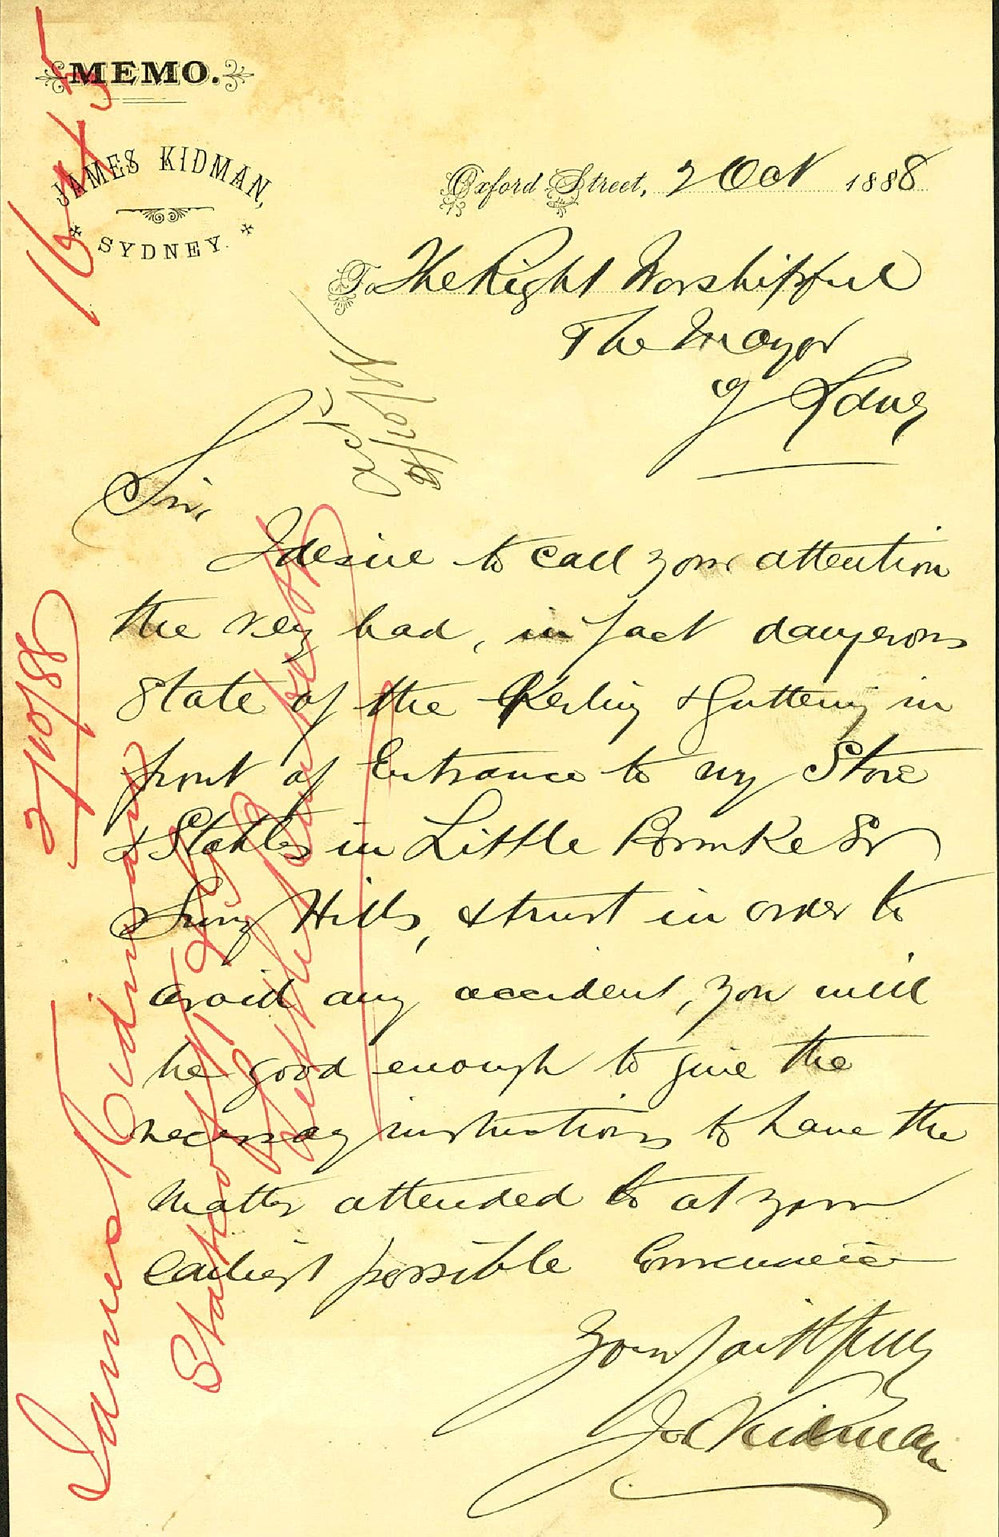 MEMO.
JAMES KIDMAN,
SYDNEY.
1645
Oxford Street, 2 Oct 1888
To The Right Worshipful
The Mayor
of Sydney
Ackd
Sir,
I desire to call your attention
the very bad, in fact dangerous
state of the Kerbing & Guttering in
front of Entrance to my Store
& Stables in Little Bourke St
Surry Hills, & trust in order to
avoid any accident, you will
be good enough to give the
necessary instructions to have the
matter attended to at your
earliest possible convenience
Yours faithfully
Jas Kidman
2/10/88
James Kidman
State of
Little Bourke St